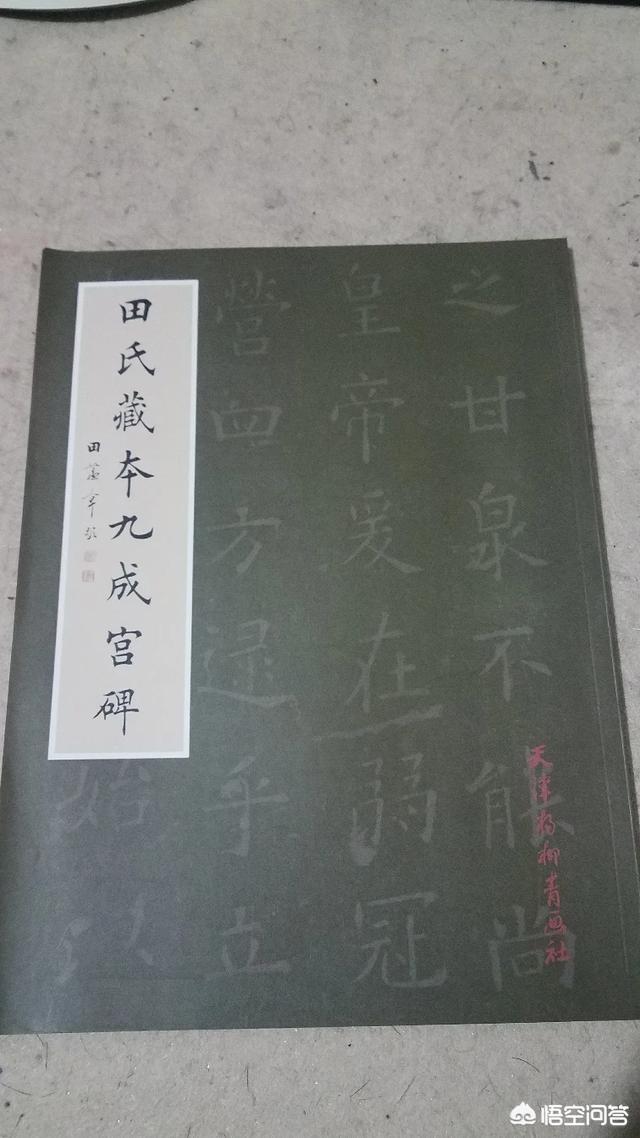 田氏藏本九成宫碑
田蕴章题
之甘泉不能尚
皇帝爰在弱冠
营四方逮乎立
始以
天津杨柳青画社
悟空问答